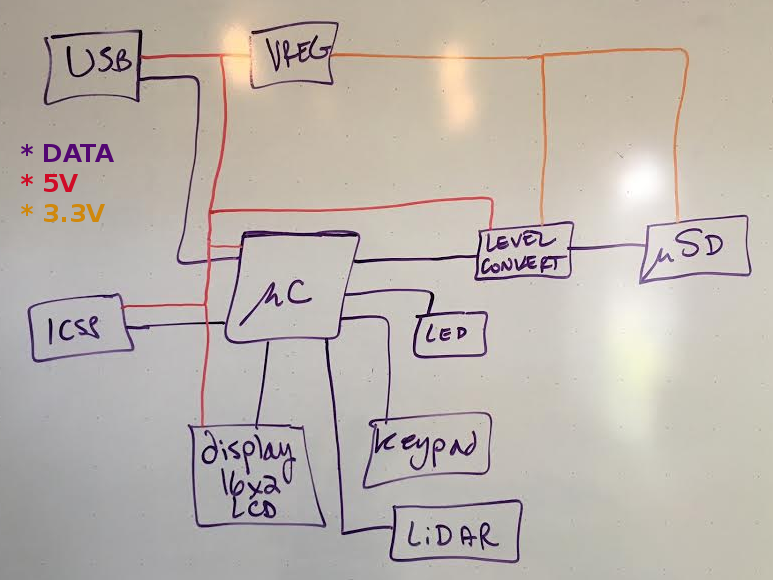 USB
VREG
* DATA
* 5V
* 3.3V
LEVEL
CONVERT
μSD
μC
ICSP
LED
display
16x2
LCD
keypad
LiDAR